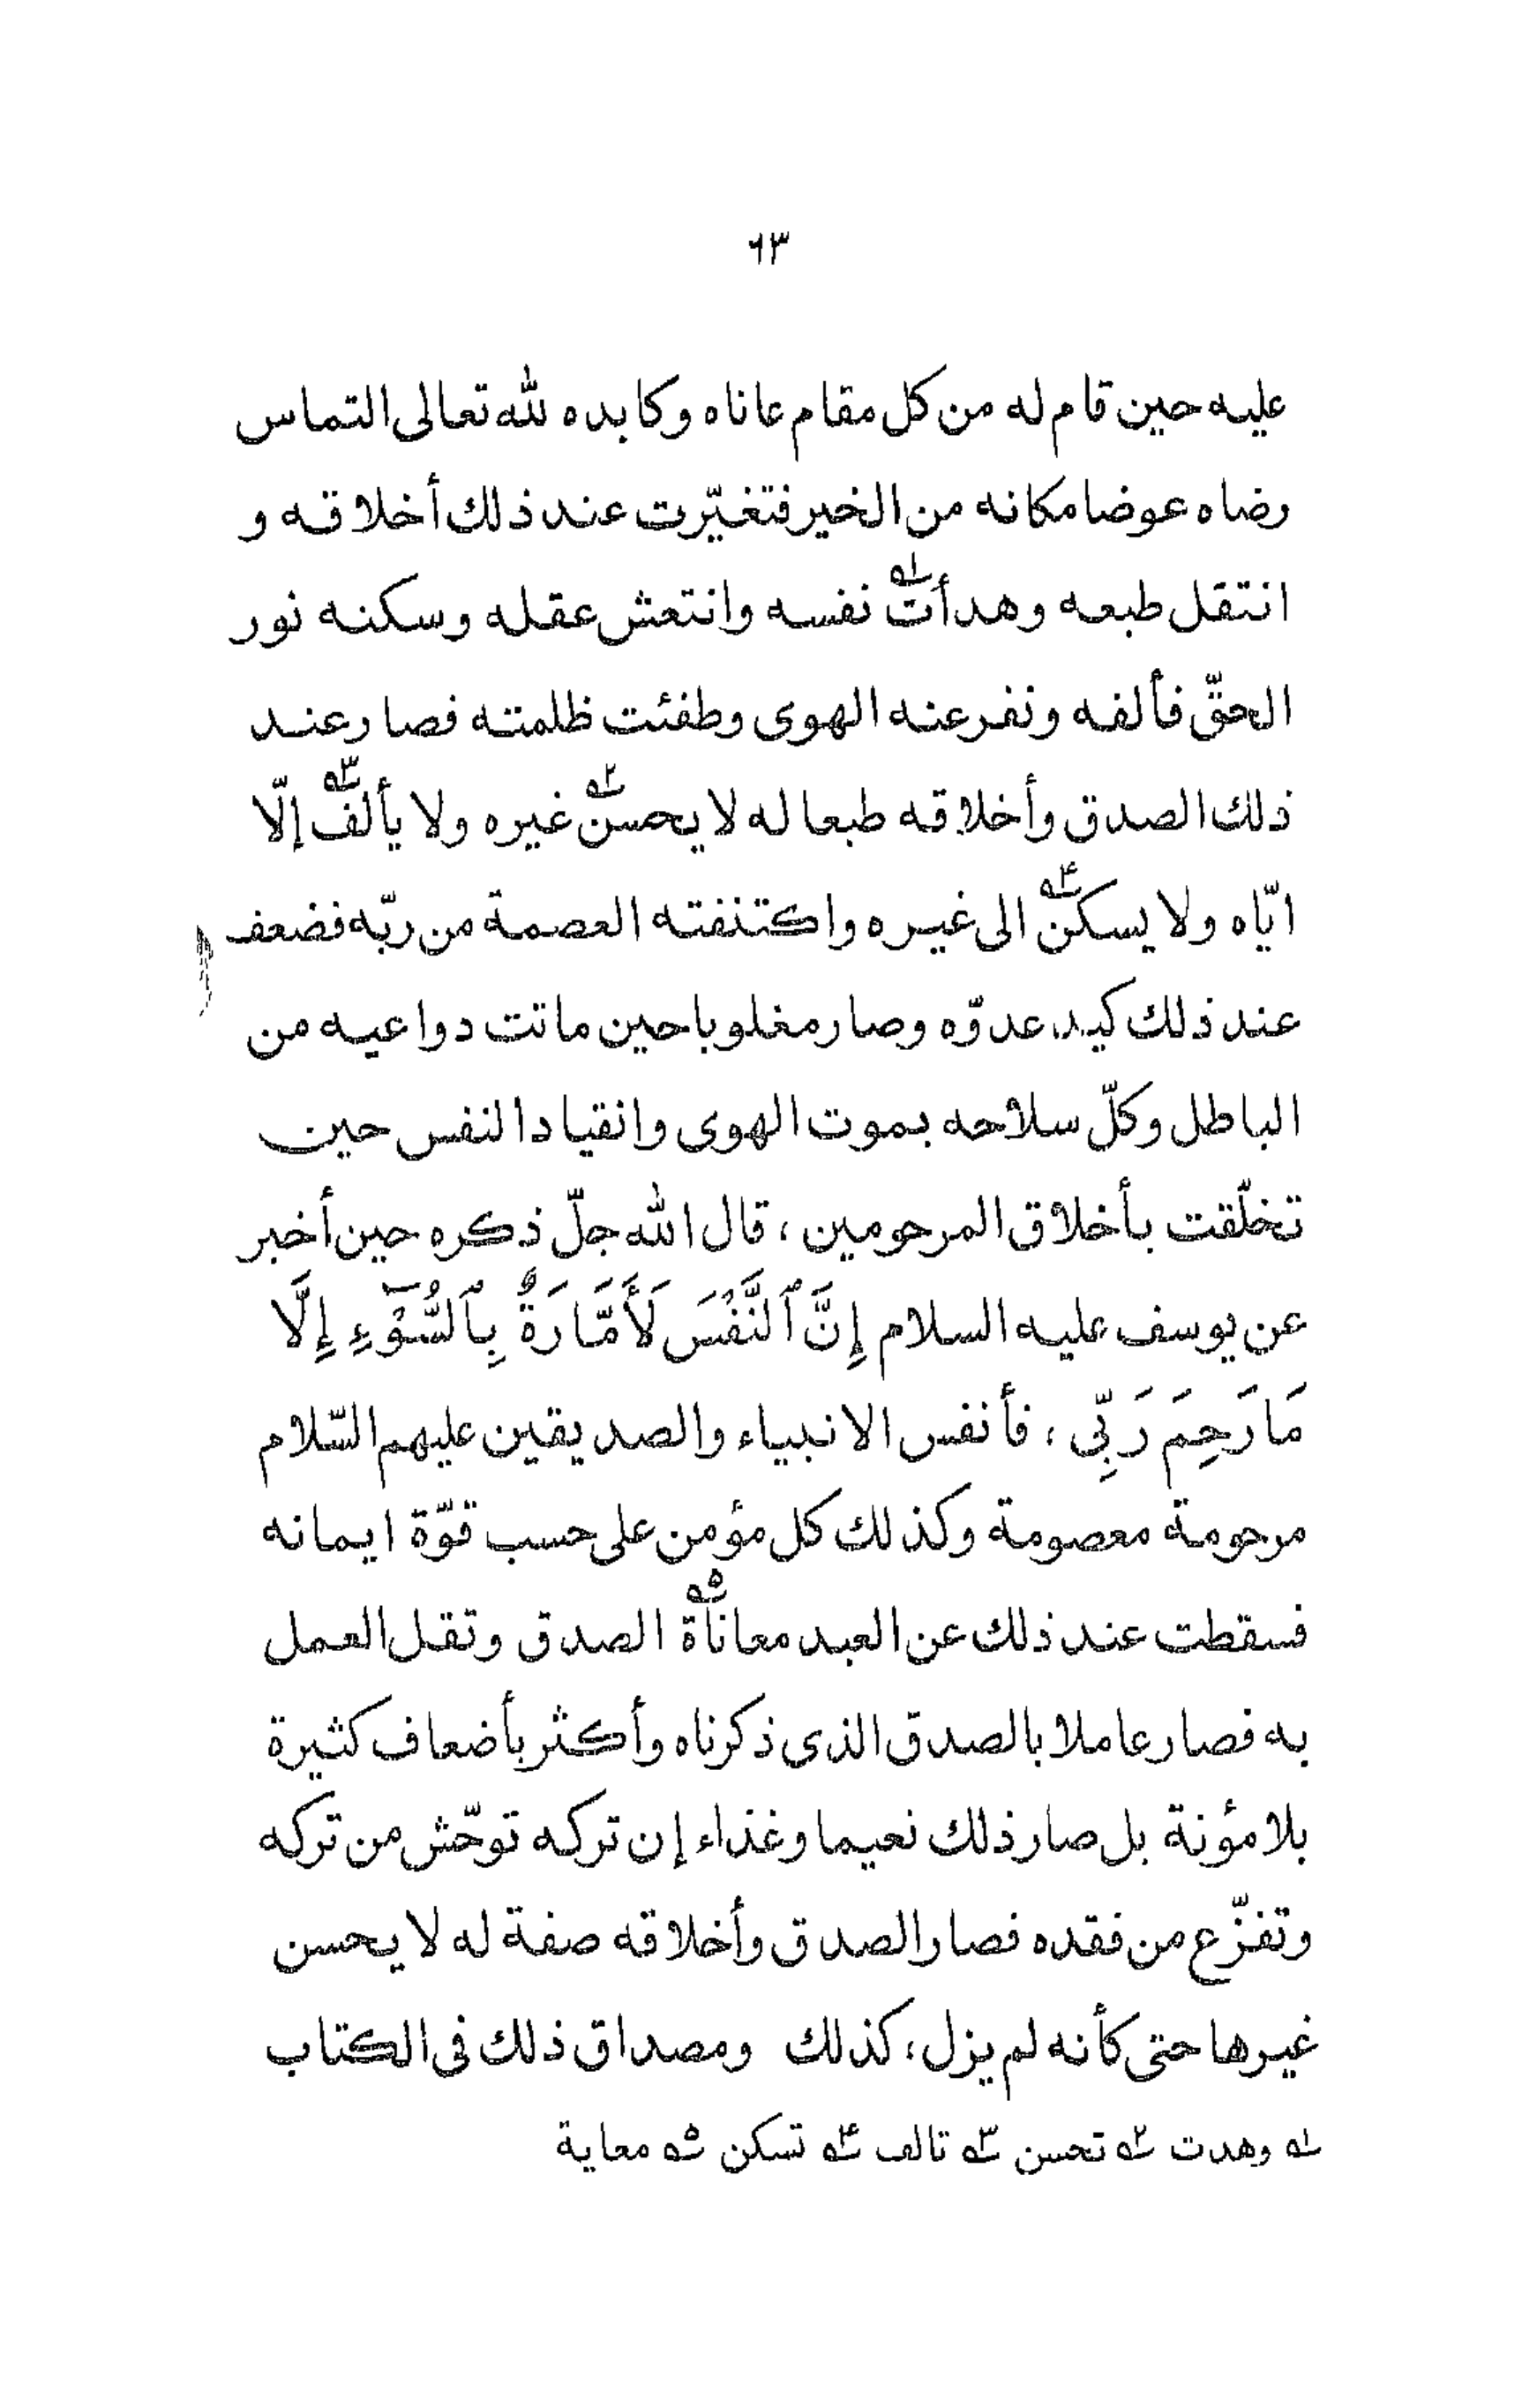 ٦٣
عليه حين قام له من كل مقام عاناه وكابده لله تعالى التماس
رضاه عوضا مكانه من الخير فتغيّرت عند ذلك أخلاقه و
انتقل طبعه وهدأت١ نفسه وانتعش عقله وسكنه نور
الحقّ فألفه ونفر عنه الهوى وطفئت ظلمته فصار عند
ذلك الصدق وأخلاقه طبعا له لا يحسن٢ غيره ولا يألف٣ إلّا
ايّاه ولا يسكن٤ الى غيره واكتنفته العصمة من ربّه فضعف
عند ذلك كيد عدوّه وصار مغلوبا حين ماتت دواعيه من
الباطل وكلّ سلاحه بموت الهوى وانقياد النفس حين
تخلّقت بأخلاق المرحومين، قال الله جلّ ذكره حين أخبر
عن يوسف عليه السلام إِنَّ ٱلنَّفْسَ لَأَمَّارَةٌ بِٱلسُّوٓءِ إِلَّا
مَا رَحِمَ رَبِّى، فأنفس الانبياء والصديقين عليهم السّلام
مرحومة معصومة وكذلك كل مؤمن على حسب قوّة ايمانه
فسقطت عند ذلك عن العبد معاناة٥ الصدق وتقل العمل
به فصار عاملا بالصدق الذى ذكرناه وأكثر بأضعاف كثيرة
بلا مؤنة بل صار ذلك نعيما وغذاء إن تركه توحّش من تركه
وتفزّع من فقده فصار الصدق وأخلاقه صفة له لا يحسن
غيرها حتى كأنه لم يزل، كذلك ومصداق ذلك فى الكتاب
١ وهدت ٢ تحسن ٣ تالف ٤ تسكن ٥ معاية